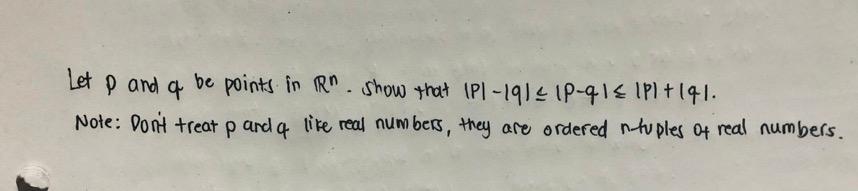 Let p and q be points in ℝⁿ. Show that |P|-|q| ≤ |P-q| ≤ |P|+|q|.
Note: Don't treat p and q like real numbers, they are ordered n-tuples of real numbers.